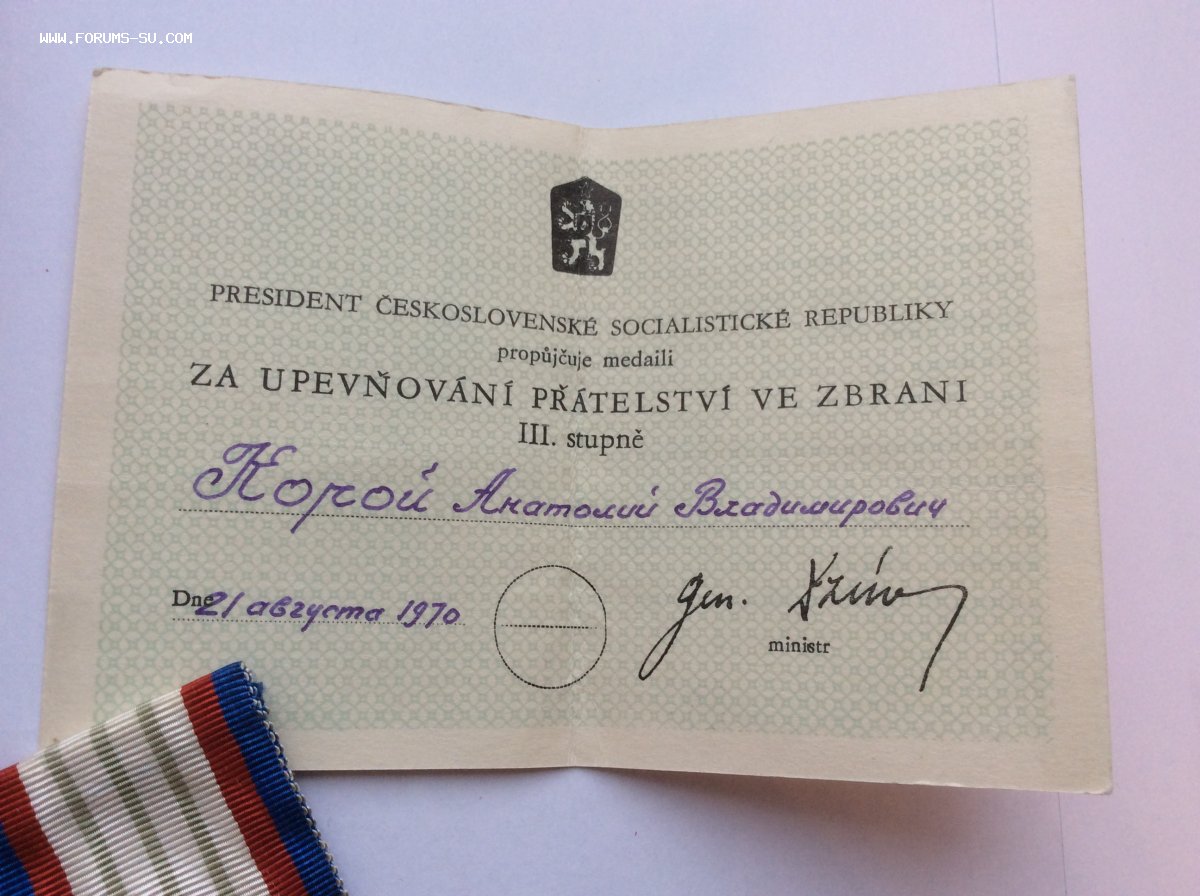 WWW.FORUMS-SU.COM
PRESIDENT ČESKOSLOVENSKÉ SOCIALISTICKÉ REPUBLIKY
propůjčuje medaili
ZA UPEVŇOVÁNÍ PŘÁTELSTVÍ VE ZBRANI
III. stupně
Корой Анатолий Владимирович
Dne 21 августа 1970
gen. Dzúr
ministr